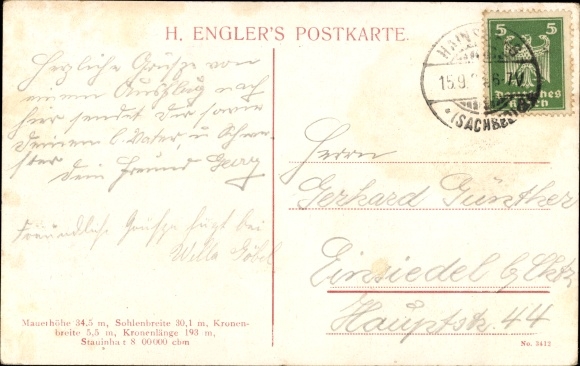 H. ENGLER'S POSTKARTE.
5 5
Deutsches
Reich
15.9. 6-7
(SACHSEN)
Herzliche Grüsse von
einem Ausflug nach
hier sendet Dir sowie
Deinem l. Vater u. Schwe-
ster
Dein Freund Georg
Freundliche Grüsse fügt bei
Willa Göbel
Herrn
Gerhard Günther
Einsiedel b/Chtz
Hauptstr. 44
Mauerhöhe 34,5 m, Sohlenbreite 30,1 m, Kronen-
breite 5,5 m, Kronenlänge 193 m,
Stauinhalt 8 00000 cbm
No. 3412